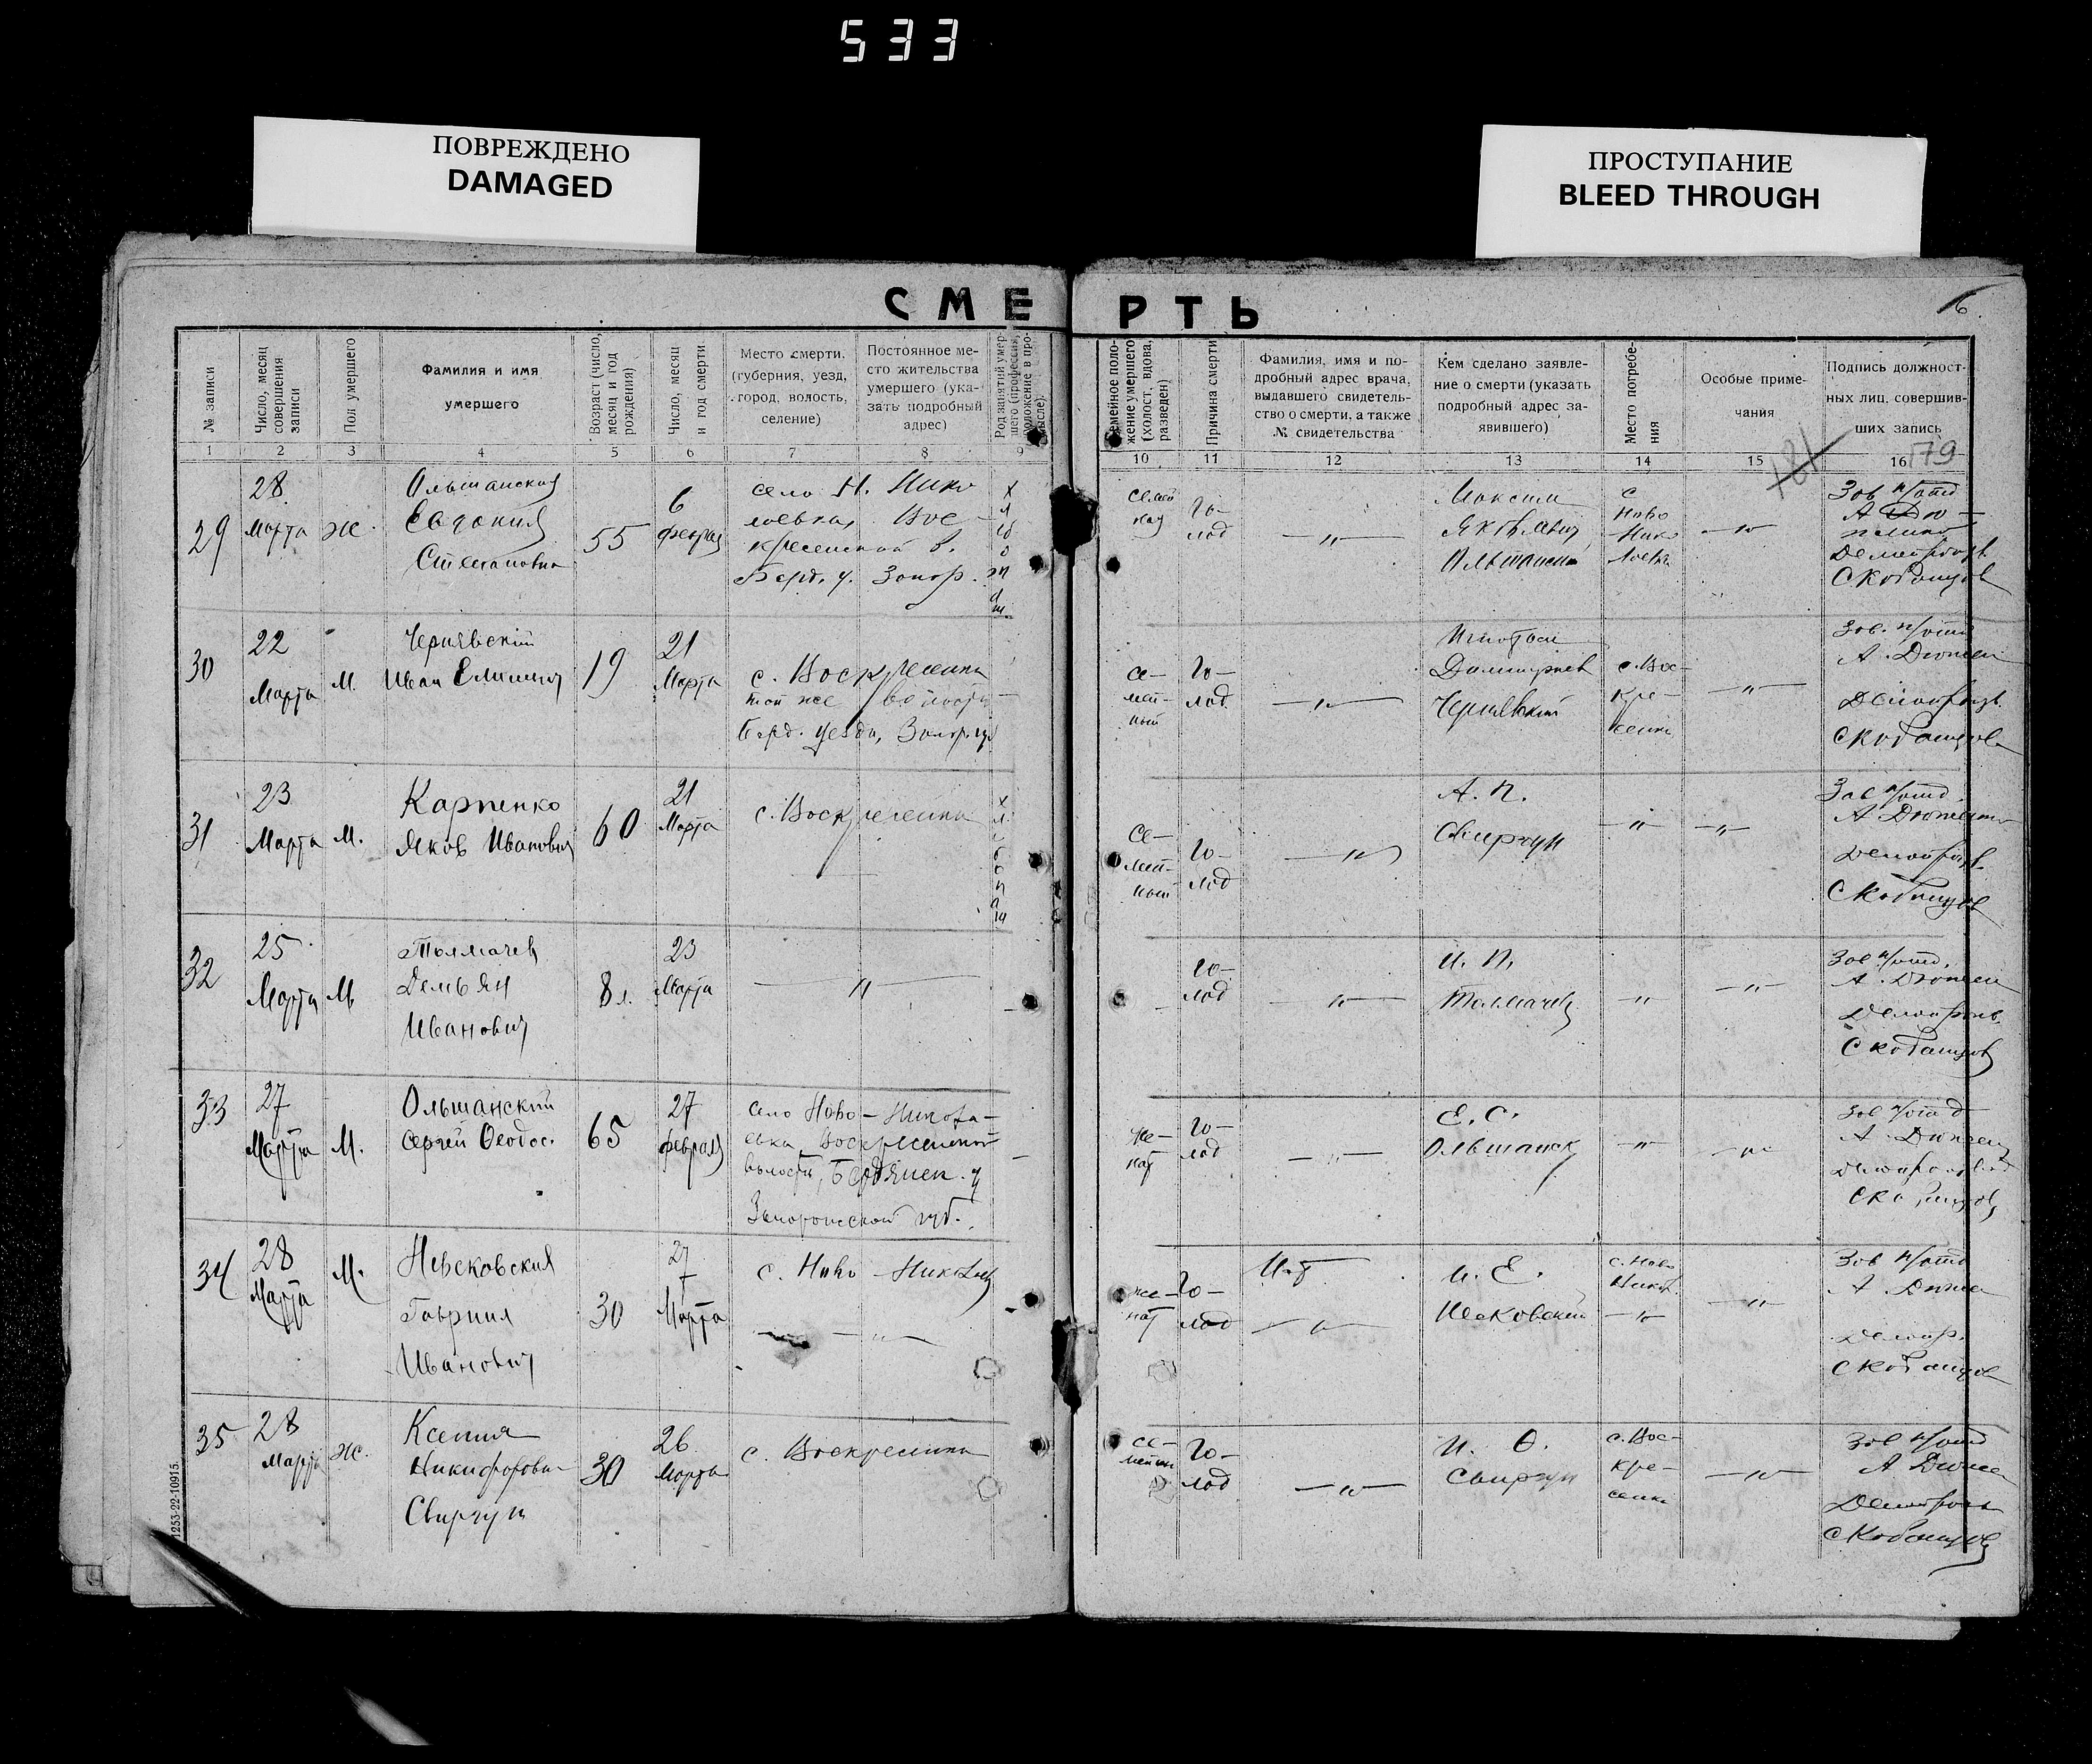 533
ПОВРЕЖДЕНО
DAMAGED
ПРОСТУПАНИЕ
BLEED THROUGH
СМЕРТЬ
6.
№ записи
Число, месяц совершения записи
Пол умершего
Фамилия и имя умершего
Возраст (число, месяц и год рождения)
Число, месяц и год смерти
Место смерти. (губерния, уезд, город, волость, селение)
Постоянное место жительства умершего (указать подробный адрес)
Род занятий умершего (профессия, положение в промысле).
Семейное положение умершего (холост, вдова, разведен)
Причина смерти
Фамилия, имя и подробный адрес врача, выдавшего свидетельство о смерти, а также № свидетельства
Кем сделано заявление о смерти (указать подробный адрес заявившего)
Место погребения
Особые примечания
Подпись должностных лиц, совершивших запись
1 2 3 4 5 6 7 8 9 10 11 12 13 14 15 16
181
179
29
28 Марта
ж.
Ольшанская
Евдокия
Степановна
55
6 февраля
село Н. Нико
лаевка, Вос
кресенской в.
Берд. у. Запор.
хлебопаш.
семей
ная
Го-
лод
—〃 —
Максим
Яковлевич
с
Ново
Нико
лаевка
— 〃 —
Зав п/отд
30
22 Марта
М.
Чернявский
Иван
19
21 Марта
с. Воскресенка
той же волости
Берд. уезда, Запор. гу
се-
мей-
ный
Го-
лод
— 〃 —
Чернявский
с. Вос-
кре-
сенка
— 〃 —
Зав. п/отд
31
23 Марта
М.
Карпенко
Яков Иванович
60
21 Марта
с. Воскресенка
хлебопаш
Се-
мей-
ный
Го-
лод
— 〃 —
А. П.
Свиргун
— 〃 —
— 〃 —
Зав п/отд.
32
25 Марта
М
Толмачев
Демьян
Иванович
8 л.
23 Марта
— 〃 —
Го-
лод
— 〃 —
И. П.
Толмачев
— 〃 —
— 〃 —
Зав п/отд.
33
27 Марта
М.
Ольшанский
Сергей Феодос.
65
27 февраля
село Ново-Никола-
евка Воскресенской
волости, Бердянск. у
Запорожской губ.
же-
нат
Го-
лод
— 〃 —
Е. С.
Ольшанск
— 〃 —
— 〃 —
Зав п/отд
34
28 Марта
М.
Гавриил
Иванович
30
27 Марта
с. Ново-Николаев
— 〃 —
же-
нат
Го-
лод
— 〃 —
И. Е.
с. Ново
Никол.
— 〃 —
— 〃 —
Зав п/отд
35
28 Марта
ж.
Ксения
Никифоровна
Свиргун
30
26 Марта
с. Воскресенка
се-
мейн
Го-
лод
— 〃 —
Свиргун
с. Вос-
кре-
сенка
— 〃 —
Зав п/отд
1253-22-10915.